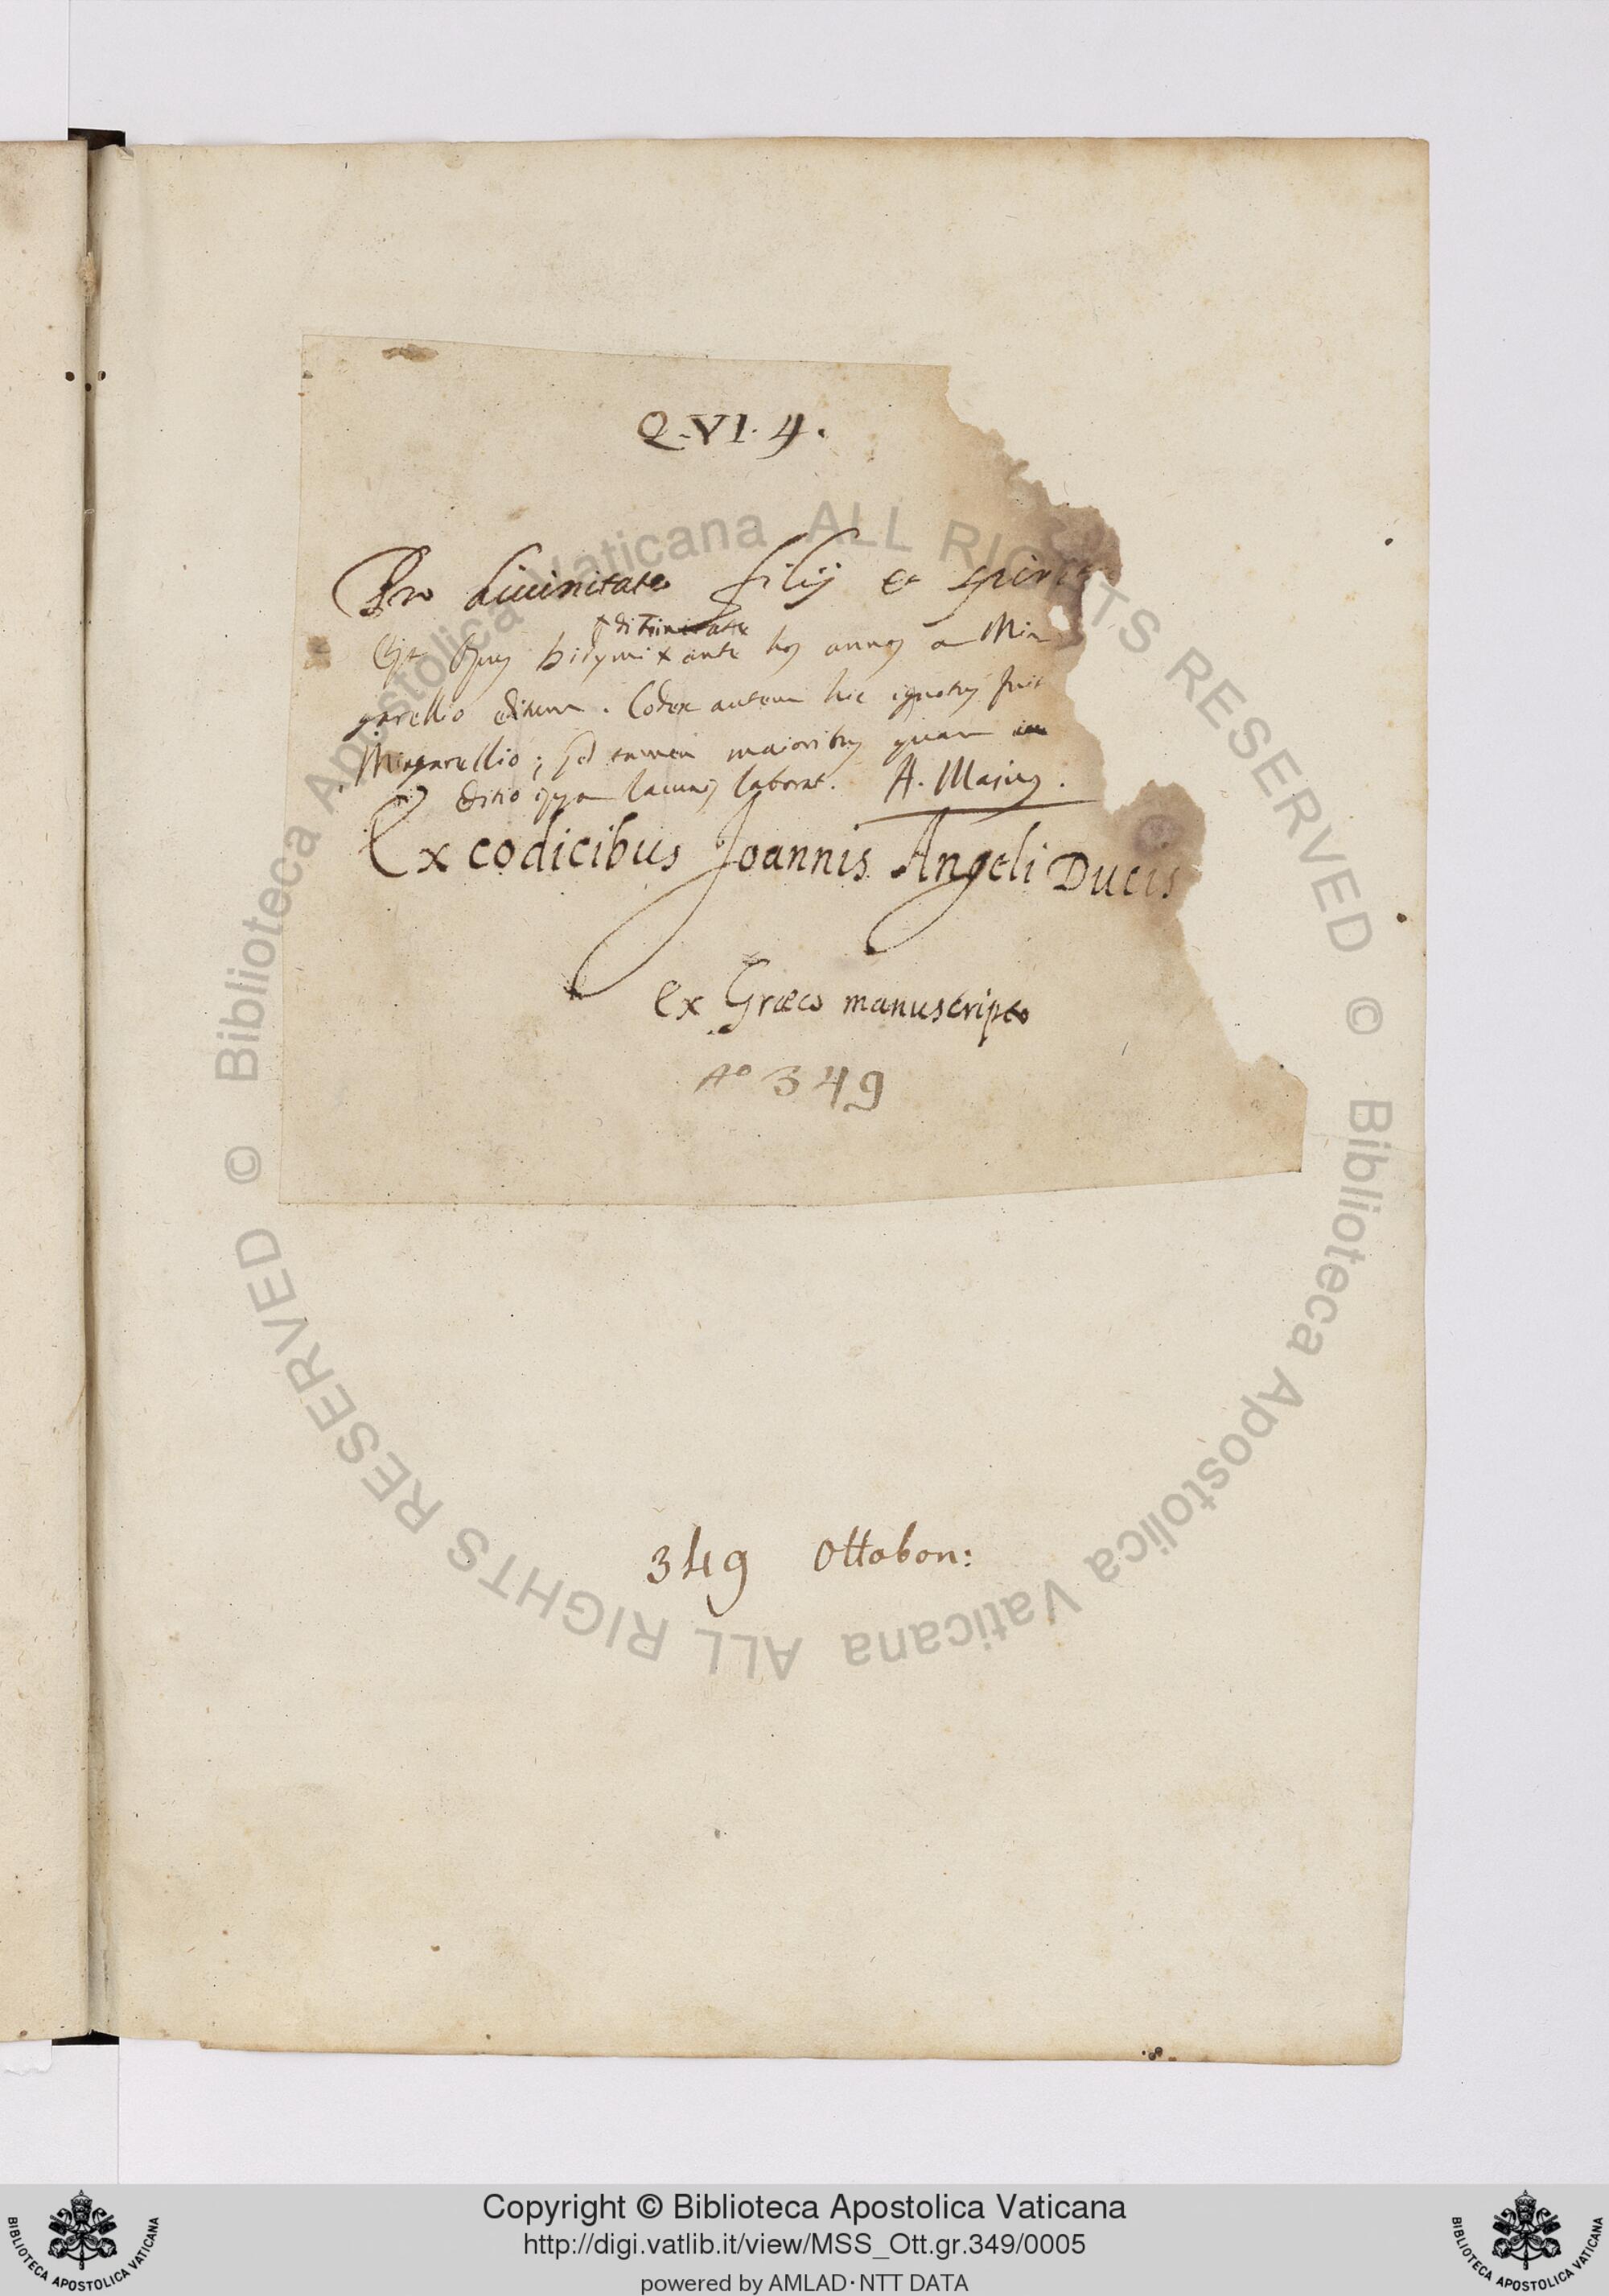 Q. VI. 4.
Pro diuinitate filij et spirit
× di Trinitate
Est opus Didymi × ante hos annos a Min
garellio editum. Codex autem hic ignotus fuit
Mingarellio; sed tamen majoribus quam
editio ipsa lacunis laborat. A. Majus.
Ex codicibus Joannis Angeli Ducis
ex Græco manuscripto
349
349 Ottobon:
© Biblioteca Apostolica Vaticana ALL RIGHTS RESERVED
© Biblioteca Apostolica Vaticana ALL RIGHTS RESERVED
Copyright © Biblioteca Apostolica Vaticana
http://digi.vatlib.it/view/MSS_Ott.gr.349/0005
powered by AMLAD·NTT DATA
BIBLIOTECA APOSTOLICA VATICANA
BIBLIOTECA APOSTOLICA VATICANA